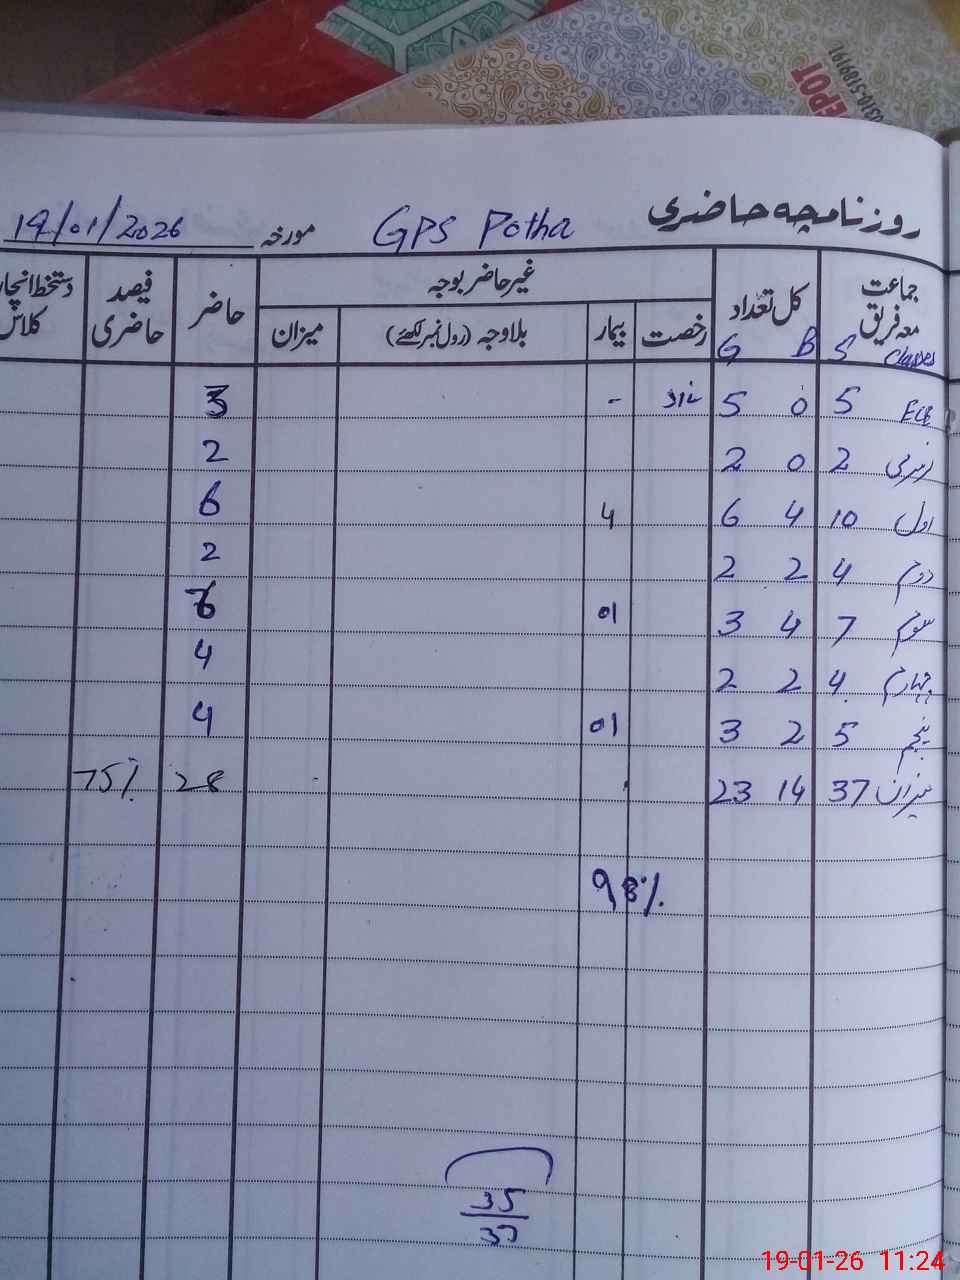 DEPOT
0310-5189191
روزنامچہ حاضری GPS Potha مورخہ 19/01/2026
جماعت معہ فریق کل تعداد غیر حاضر بوجہ حاضر فیصد حاضری دستخط انچارج کلاس
رخصت بیمار بلاوجہ (رول نمبر لکھئے) میزان
Classes S B G
ECE 5 0 5 - 3
نرسری 2 0 2 2
اول 10 4 6 4 6
دوم 4 2 2 2
سوم 7 4 3 01 6
چہارم 4 2 2 4
پنجم 5 2 3 01 4
میزان 37 14 23 28 75%
98%
35
37
19-01-26 11:24